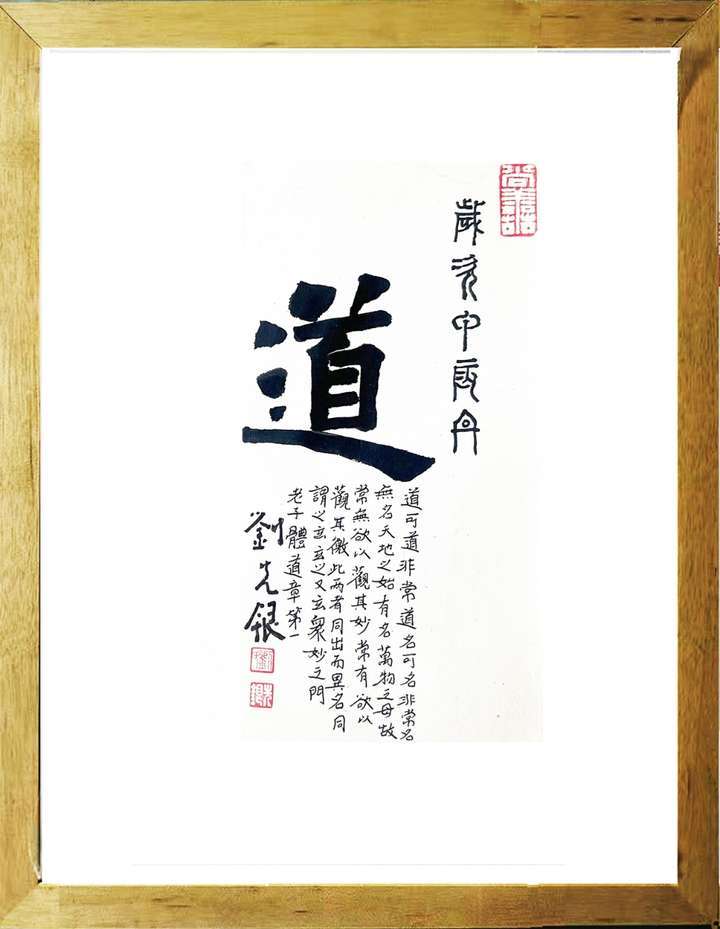 歲次甲辰
道
道可道非常道名可名非常名
無名天地之始有名萬物之母故
常無欲以觀其妙常有欲以
觀其徼此两者同出而異名同
謂之玄玄之又玄衆妙之門
老子體道章第一
劉先銀